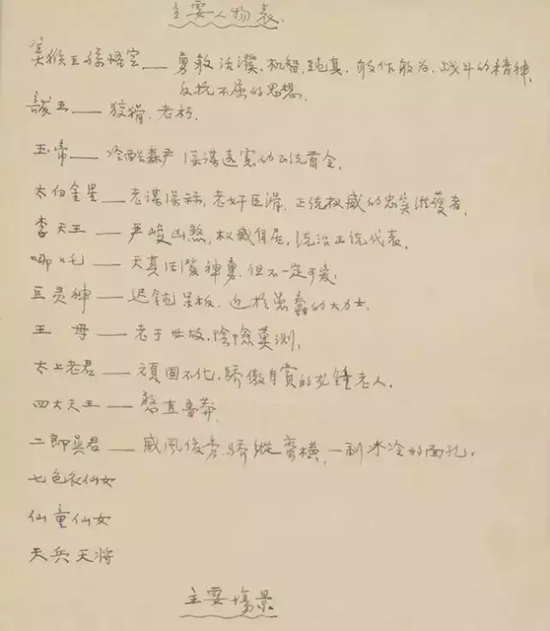 主要人物表
美猴王孫悟空——勇敢活潑、机智、純真、敢作敢为、战斗的精神,
反抗不屈的思想。
龍王——狡猾、老朽。
玉帝——冷酷森严 深謀遠
太白金星——老謀深祘,老奸巨滑,正统权威的忠实维護者,
李天王——严峻凶煞,权威自居,统治正统代表。
哪吒——天真活潑神勇,但不一定可爱。
巨灵神——迟鈍呆板,近於愚蠢的大力士。
王 母——老于世故,陰險莫測,
太上老君——頑固不化,驕傲自賞的龙鍾老人。
四大天王——憨直鲁莽。
二郎真君——威風俊秀、驕縱蛮横,一副冰冷的面孔。
七色衣仙女
仙童仙女
天兵天将
主要塲景